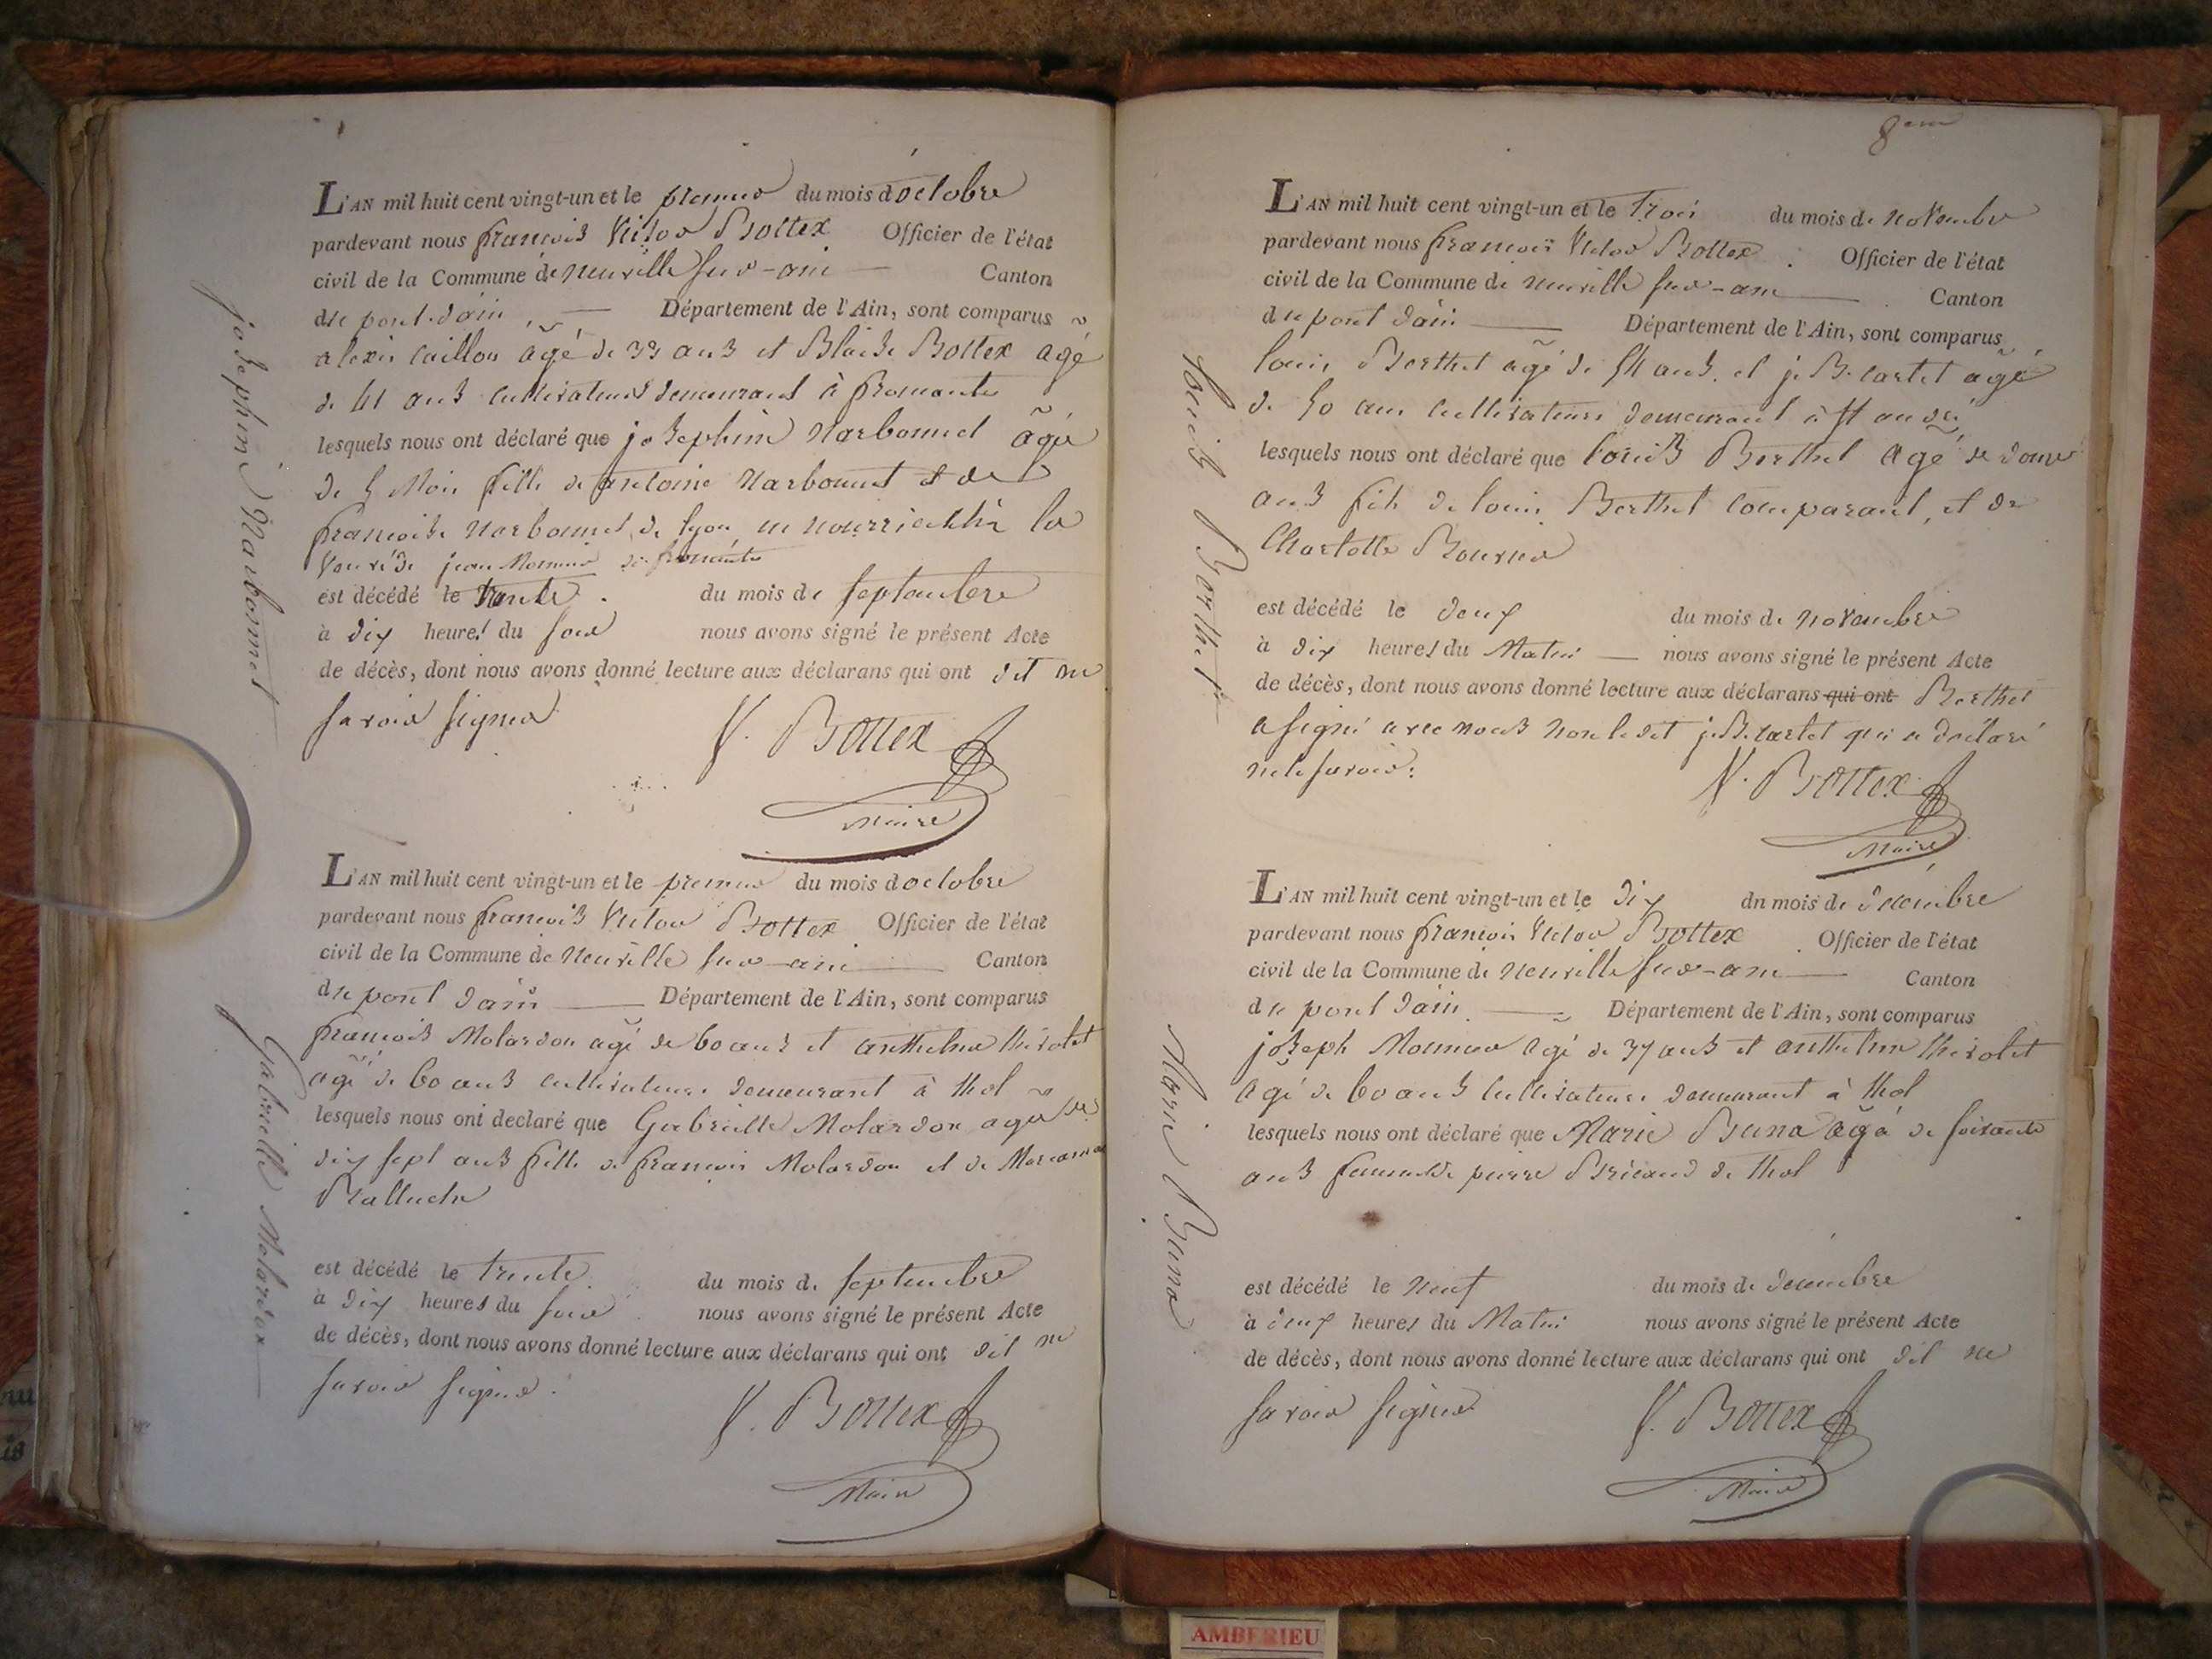 L'AN mil huit cent vingt-un et le premier du mois d'octobre
pardevant nous françois Victor Bottex Officier de l'état
civil de la Commune de neuville sur-ain Canton
de pont-dain Département de l'Ain, sont comparus
alexis caillon agé de 33 ans et Blaise Bottex agé
de 41 ans cultivateurs demeurant à fromente
lesquels nous ont déclaré que josephine Narbonnet agée
de 5 Mois fille de antoine Narbonnet et de
françoise Narbonnet de lyon en nourrice chés la
Veuve de jean Monnier de fromente
est décédé le trente du mois de septembre
à dix heures du soir nous avons signé le présent Acte
de décès, dont nous avons donné lecture aux déclarans qui ont dit ne
savoir signer
V. Bottex
Maire
josephine Narbonnet
L'AN mil huit cent vingt-un et le premier du mois d'octobre
pardevant nous françois Victor Bottex Officier de l'état
civil de la Commune de neuville sur-ain Canton
de pont dain Département de l'Ain, sont comparus
françois Molardon agé de 60 ans et anthelme thevolet
agé de 60 ans cultivateurs demeurant à thol
lesquels nous ont declaré que Gabrielle Molardon agée de
dix sept ans fille de françois Molardon et de
est décédé le trente du mois de septembre
à dix heures du soir nous avons signé le présent Acte
de décès, dont nous avons donné lecture aux déclarans qui ont dit ne
savoir signer.
V. Bottex
Maire
Gabrielle Molardon
8eme
L'AN mil huit cent vingt-un et le trois du mois de novembre
pardevant nous françois Victor Bottex Officier de l'état
civil de la Commune de neuville sur-ain Canton
de pont dain Département de l'Ain, sont comparus
louis Berthet agé de 54 ans et j. B. cartet agé
de 50 ans cultivateurs demeurant à St andré
lesquels nous ont déclaré que louis Berthet agé de douze
ans fils de louis Berthet comparant, et de
Charlotte
est décédé le deux du mois de novembre
à dix heures du Matin nous avons signé le présent Acte
de décès, dont nous avons donné lecture aux déclarans qui ont Berthet
a signé avec nous non le dit j. B. cartet qui a déclaré
ne le savoir.
V. Bottex
Maire
louis Berthet
L'AN mil huit cent vingt-un et le dix dn mois de decembre
pardevant nous françois Victor Bottex Officier de l'état
civil de la Commune de neuville sur-ain Canton
de pont dain Département de l'Ain, sont comparus
joseph Monnier agé de 37 ans et anthelme thevolet
agé de 60 ans cultivateurs demeurant à thol
lesquels nous ont déclaré que Marie Buna agé de soixante
ans femme de pierre Bricaud de thol
est décédé le neuf du mois de decembre
à deux heures du Matin nous avons signé le présent Acte
de décès, dont nous avons donné lecture aux déclarans qui ont dit ne
savoir signer
V. Bottex
Maire
Marie Buna
AMBERIEU